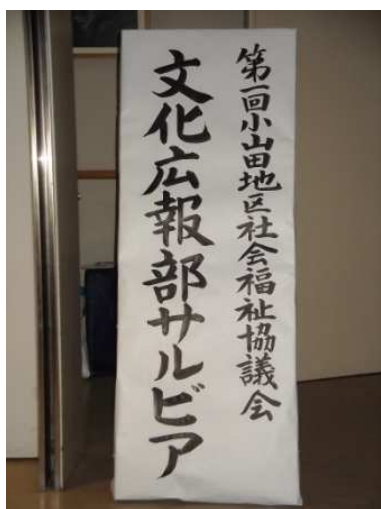 第一回小山田地区社会福祉協議会
文化広報部サルビア